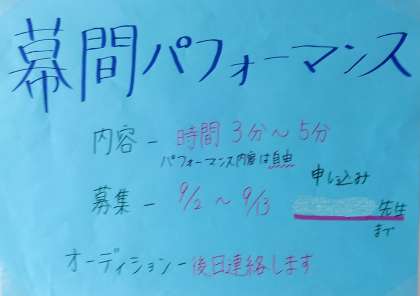 幕間パフォーマンス
内容 - 時間 3分〜5分
パフォーマンス内容は自由
申し込み
募集 - 9/2 〜 9/13
先生
まで
オーディション - 後日連絡します